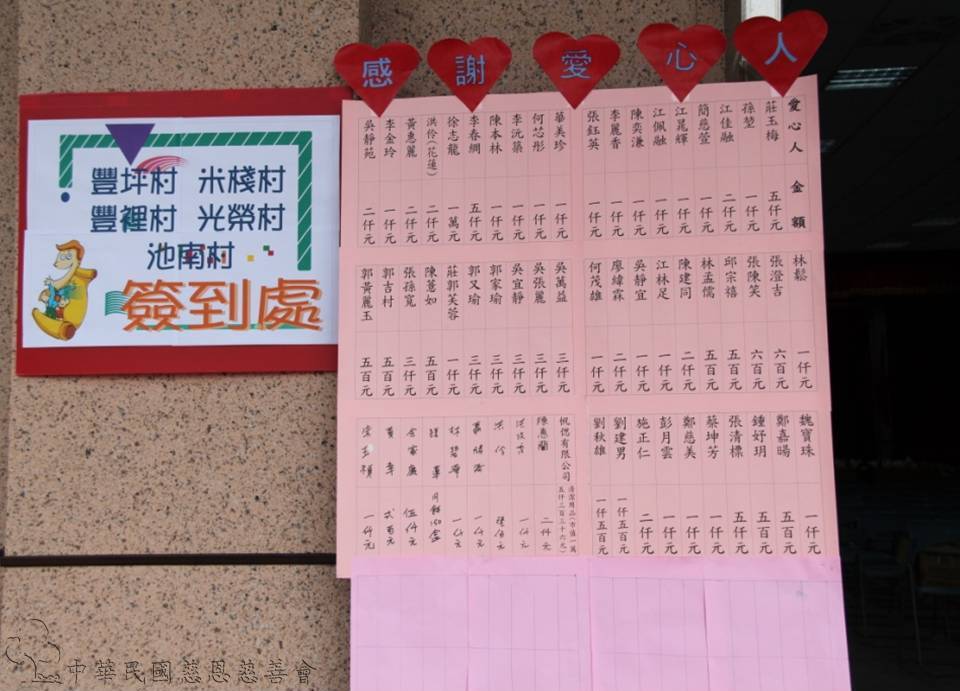 感謝愛心人
豐坪村 米棧村
豐裡村 光榮村
池南村
簽到處
愛心人 金額
莊玉梅 五仟元
孫堃 一仟元
江佳融 二仟元
簡慈萱 一仟元
江晁輝 一仟元
江佩融 一仟元
陳奕谦 一仟元
李麗香 一仟元
張鈺英 一仟元
華美珍 一仟元
何芯彤 一仟元
李沅築 一仟元
陳本林 一仟元
李春綢 五仟元
徐志龍 一萬元
洪伶(花蓮) 二仟元
黃惠麗 二仟元
李金玲 一仟元
吳靜苑 二仟元
林鬆 一仟元
張澄吉 六百元
張陳笑 六百元
邱宗禧 五百元
林孟儒 五百元
陳建同 二仟元
江林足 一仟元
吳靜宜 一仟元
廖緯霖 二仟元
何茂雄 一仟元
吳萬益 三仟元
吳張麗 三仟元
吳宜靜 三仟元
郭家瑜 三仟元
郭又瑜 三仟元
莊郭芙蓉 一仟元
陳薏如 五百元
張孫寬 三仟元
郭吉村 五百元
郭黃麗玉 五百元
魏寶珠 一仟元
鄭嘉暘 五百元
鍾妤玥 五百元
張清標 五仟元
蔡坤芳 一仟元
鄭慈美 一仟元
彭月雲 一仟元
施正仁 二仟元
劉建男 一仟五百元
劉秋雄 一仟五百元
帆偲有限公司 清潔用品(市值一萬五仟三百三十六元)
陳惠蘭 二仟元
一仟元
一仟元
一仟元
伍仟元
貳百元
一仟元
中華民國慈恩慈善會